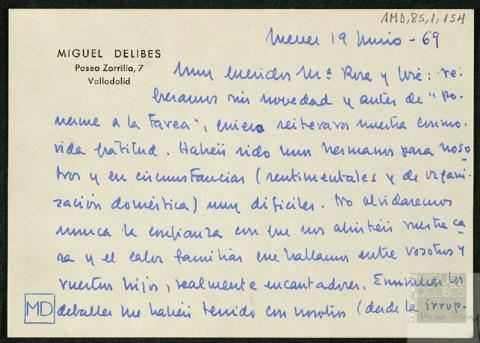 AMD,85,1,154
MIGUEL DELIBES
Paseo Zorrilla, 7
Valladolid
19 Junio - 69
Muy queridos Mª Rosa y José: re-
gresamos sin novedad y antes de "po-
nerme a la tarea", quiero reiteraros nuestra conmo-
vida gratitud. Habéis sido unos hermanos para noso-
tros y en circunstancias (sentimentales y de organi-
zación doméstica) muy difíciles. No olvidaremos
nunca la confianza con que nos abristeis vuestra ca-
sa y el calor familiar que hallamos entre vosotros y
vuestros hijos, realmente encantadores. Enumerar los
detalles que habéis tenido con nosotros (desde la irrup-
MD
FUNDACIÓN
MIGUEL
DELIBES